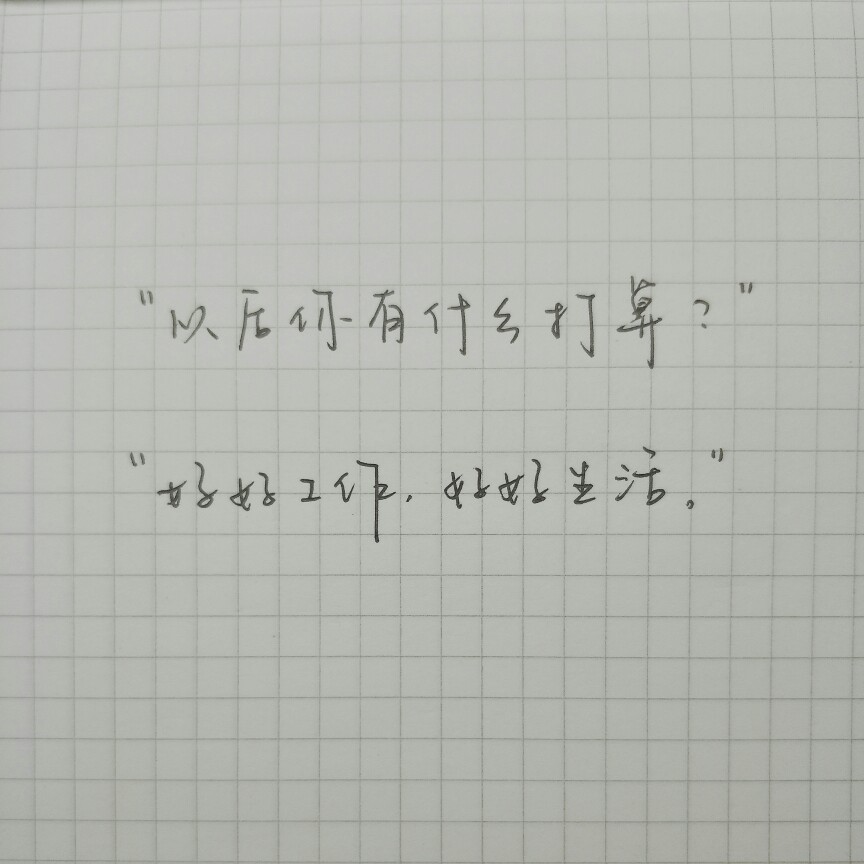 "以后你有什么打算？"
"好好工作，好好生活。"